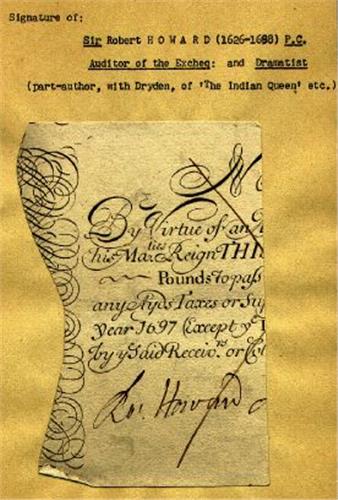 Signature of:
Sir Robert HOWARD (1626-1688) P.C.
Auditor of the Excheq: and Dramatist
(part-author, with Dryden, of 'The Indian Queen' etc.)
N
By Virtue of an
his Maties Reign THI
Pounds to pass
any Ayds Taxes or Su
year 1697 (Except ye
by ye Said Receivrs or Co
Ro: Howard